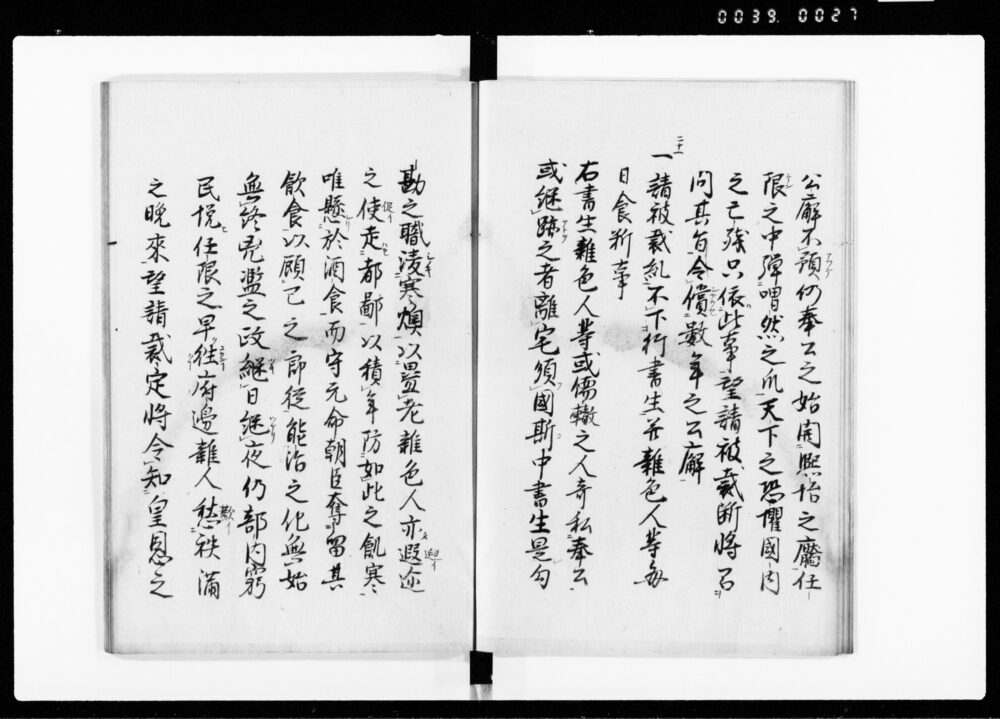 0039. 0027
公廨不預仍奉公之始開熈怡之靨任
限之中弾喟然之爪天下之恐懼國内
之亡残只依此事望請被裁断将召
問其旨令償数年之公廨
二十一
一請被裁糺不下行書生并雑色人等毎
日食新事
右書生雑色人等或儒轍之人奇私奉公
或継跡之者離宅須國斯中書生是勾
勘之職凌寒燠以曇老雑色人亦遐迩
之使走都鄙以積年防如此之飢寒
唯懸於酒食而守元命朝臣奪留其
飲食以顧己之郎従能治之化無始
無終甭濫之政継日継夜仍部内窮
民悦任限之早往府邊雑人愁秩満
之晩来望請裁定将令知皇恩之